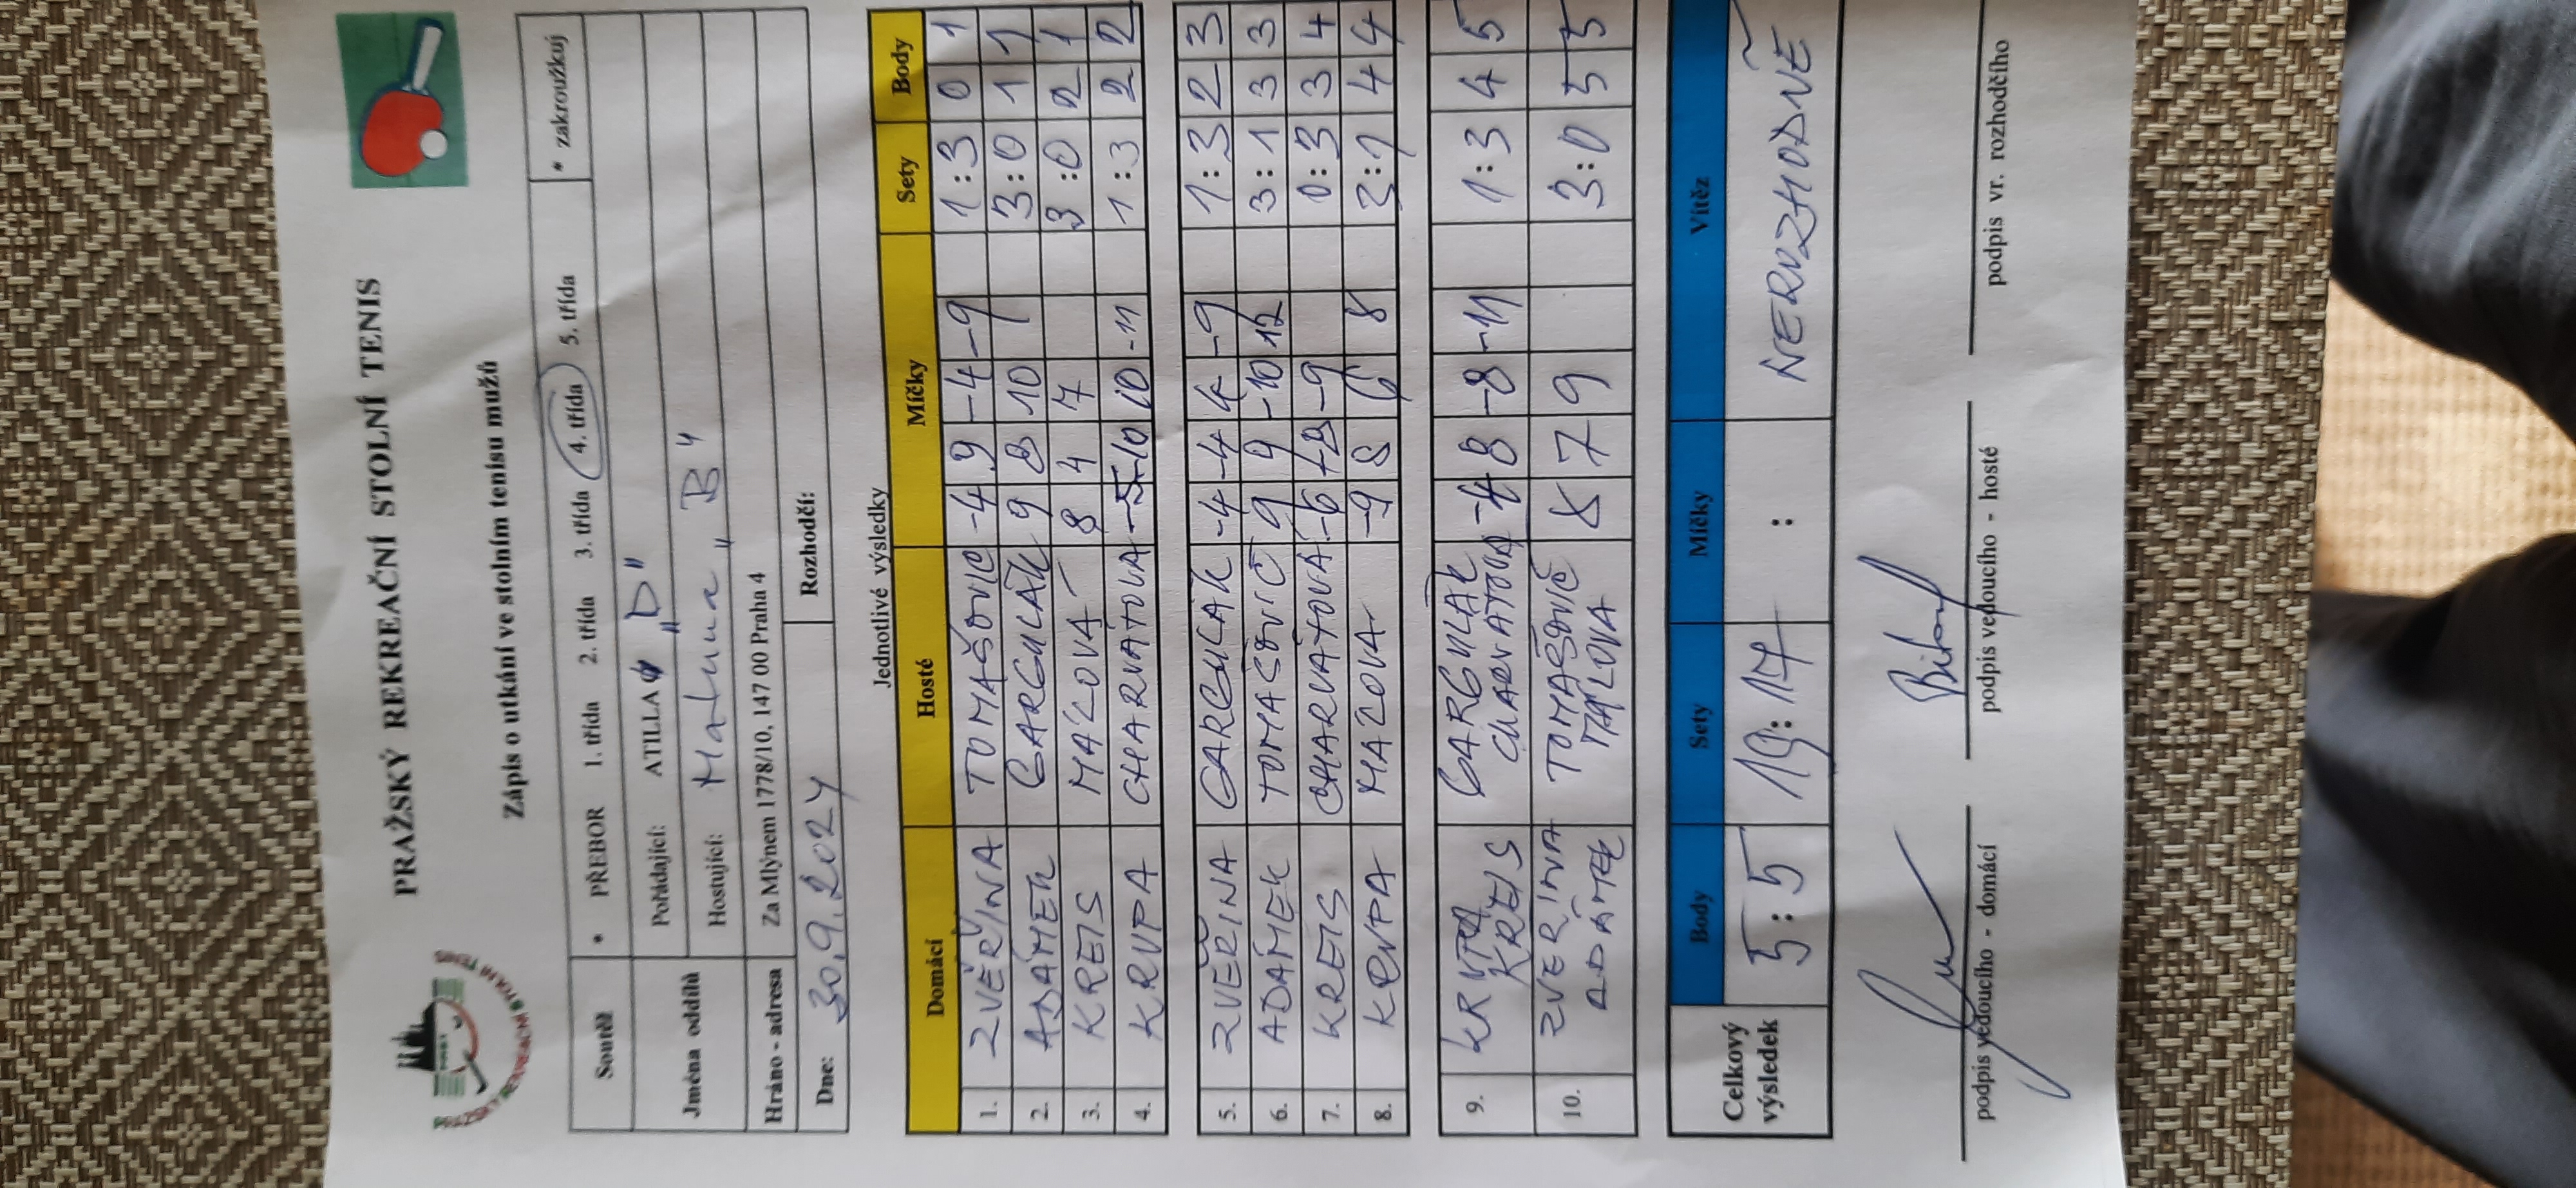 PRAŽSKÝ REKREAČNÍ STOLNÍ TENIS
Zápis o utkání ve stolním tenisu mužů
Soutěž * PŘEBOR 1. třída 2. třída 3. třída 4. třída 5. třída * zakroužkuj
Jména oddílů Pořádající: ATILLA "D"
Hostující: Matuna "B"
Hráno - adresa Za Mlýnem 1778/10, 147 00 Praha 4
Dne: 30.9.2024 Rozhodčí:
Jednotlivé výsledky
Domácí Hosté Míčky Sety Body
1. ZVĚŘINA TOMAŠOVIČ -4 9 -4 -9 1:3 0 1
2. ADÁMEK GARGULÁK 9 8 10 3:0 1 1
3. KREIS MAZOVÁ 8 4 7 3:0 2 1
4. KRUPA CHARVÁTOVÁ -5 -10 10 -11 1:3 2 2
5. ZVĚŘINA GARGULÁK -4 -4 4 -9 1:3 2 3
6. ADÁMEK TOMAŠOVIČ 9 9 -10 12 3:1 3 3
7. KREIS CHARVÁTOVÁ -6 -9 0:3 3 4
8. KRUPA MAZOVA -9 8 6 8 3:1 4 4
9. KRUPA KREIS GARGULÁK CHARVÁTOVÁ 8 -8 -11 1:3 4 5
10. ZVĚŘINA ADÁMEK TOMAŠOVIČ 8 7 9 3:0 5 5
Celkový výsledek Body Sety Míčky Vítěz
5:5 19:17 : NEROZHODNĚ
podpis vedoucího - domácí podpis vedoucího - hosté podpis vr. rozhodčího